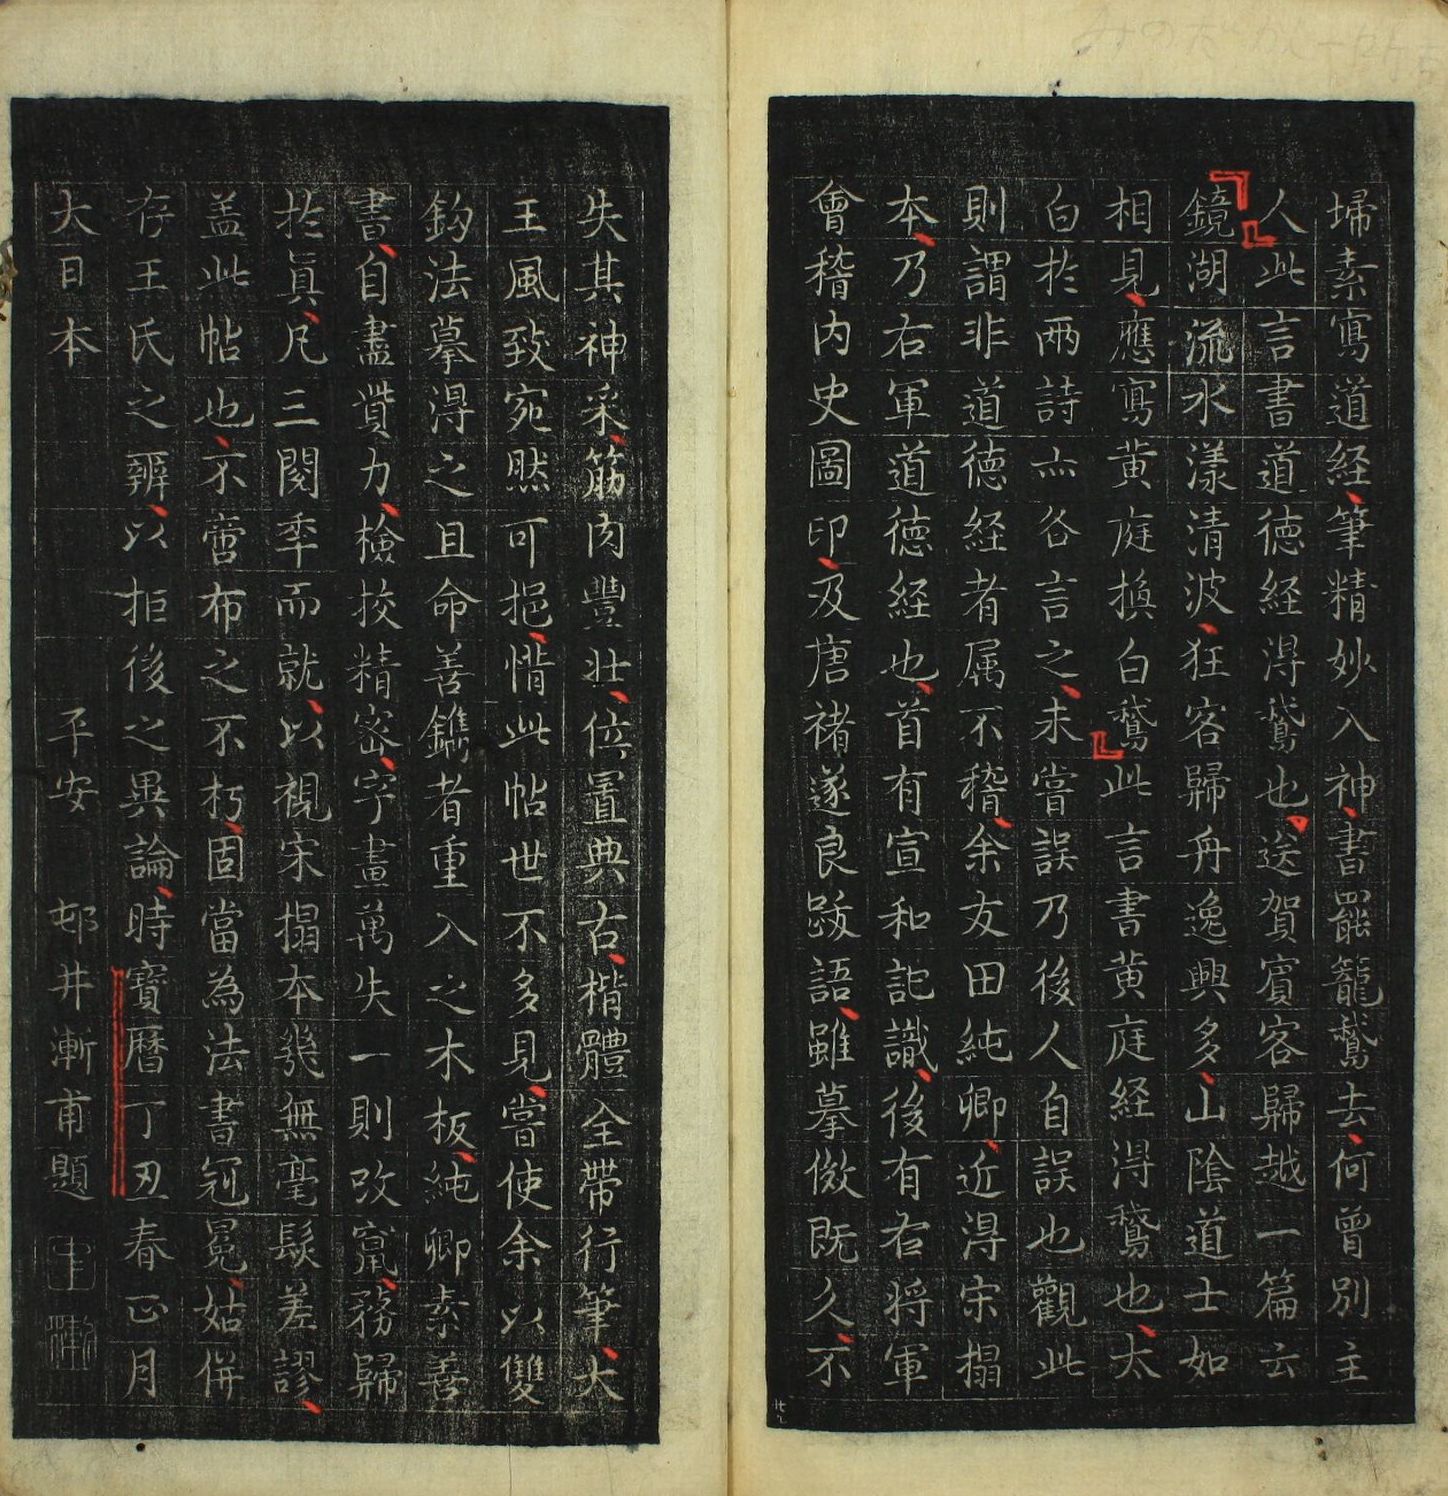 埽素寫道経筆精妙入神書罷籠鵞去何曾別主
人此言書道徳経得鵞也送賀賓客歸越一篇云
鏡湖流水漾清波狂客歸舟逸興多山陰道士如
相見應寫黄庭換白鵞此言書黄庭経得鵞也太
白於兩詩亦各言之未嘗誤乃後人自誤也觀此
則謂非道徳経者属不稽余友田純卿近得宋搨
本乃右軍道徳経也首有宣和記識後有右将軍
會稽内史圖印及唐褚遂良跋語雖摹倣既久不
失其神采筋肉豐壮位置典古楷體全帶行筆大
王風致宛然可挹惜此帖世不多見嘗使余以雙
鈎法摹得之且命善鐫者重入之木板純卿素善
書自盡貲力檢挍精密字畫萬失一則改竄務歸
於眞凡三閲年而就以視宋搨本幾無毫髮差謬
盖此帖也不啻布之不朽固當為法書冠冕姑併
存王氏之辨以拒後之異論時寶暦丁丑春正月
大日本 平安 邨井漸甫題